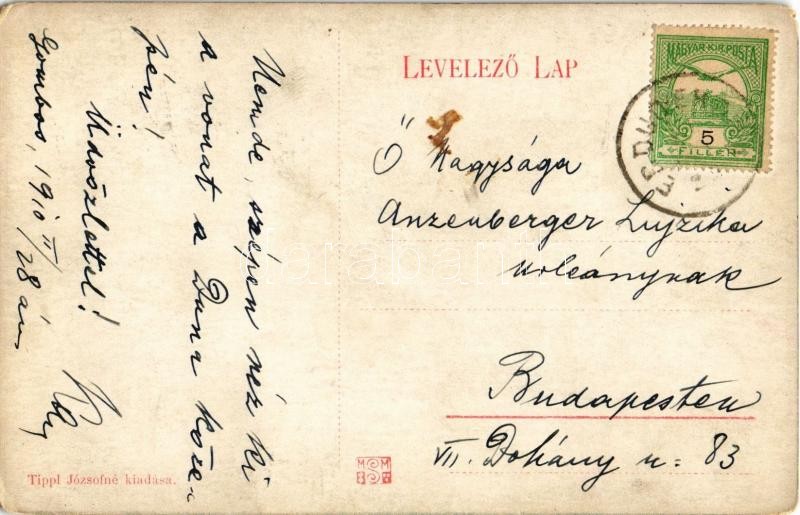 LEVELEZŐ LAP
MAGYAR KIR. POSTA
5
FILLÉR
Ő Nagysága
Anzenberger Lujzika
urleánynak
Budapesten
VII. Dohány u: 83
Nemde, szépen néz ki
a vonat a Duna köze-
pén!
Üdvözlettel!
Gombos, 1910 II/28 án
Tippl Józsofné kiadása.
MSM